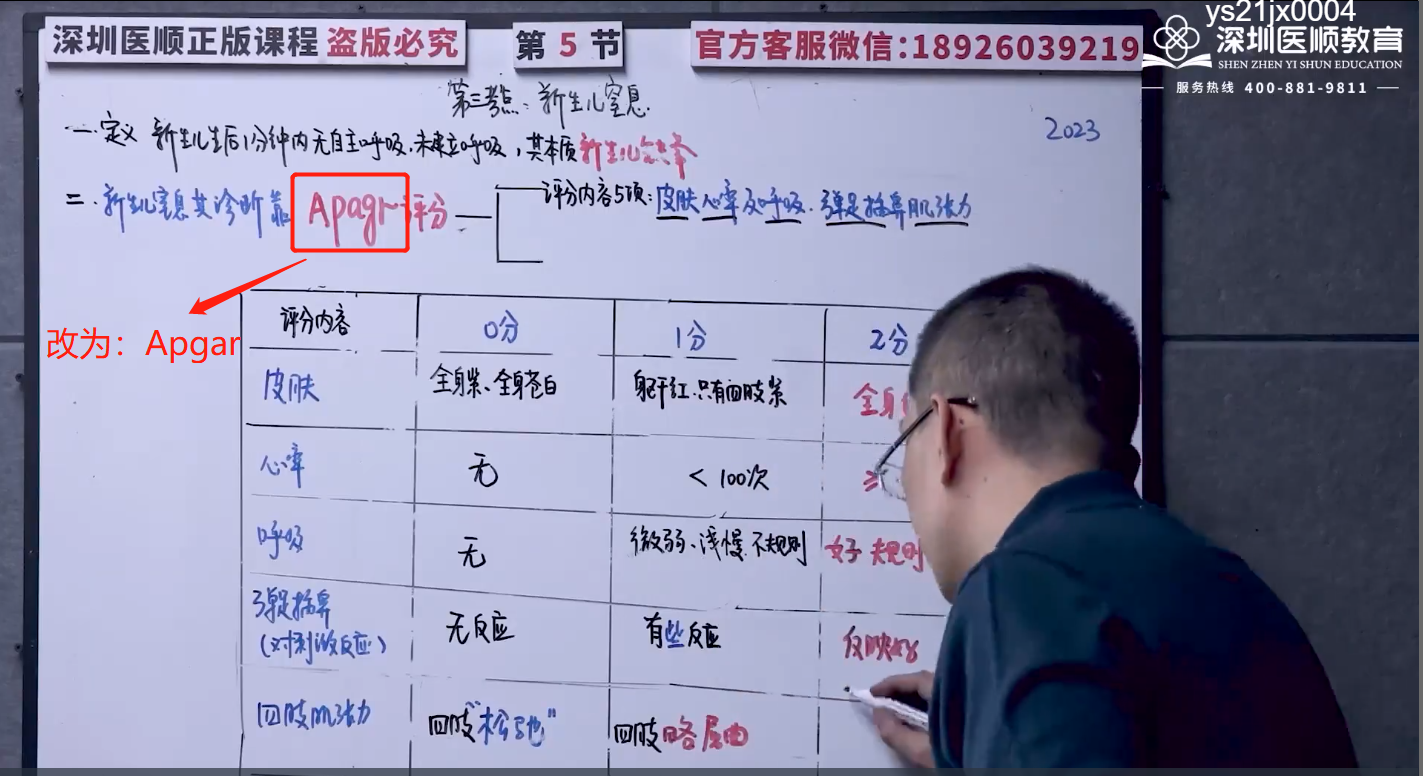 深圳医顺正版课程 盗版必究
第 5 节
官方客服微信:18926039219
ys21jx0004
深圳医顺教育
SHEN ZHEN YI SHUN EDUCATION
服务热线 400-881-9811
第三考点:新生儿窒息
2023
一.定义 新生儿生后1分钟内无自主呼吸.未建立呼吸,其本质新生儿缺氧
二.新生儿窒息其诊断靠Apagr评分
评分内容5项:皮肤 心率及呼吸.弹足插鼻肌张力
改为:Apgar
评分内容 0分 1分 2分
皮肤 全身紫、全身苍白 躯干红.只有四肢紫 全身
心率 无 < 100次 ≥
呼吸 无 微弱、浅慢 不规则 好 规则
弹足插鼻
(对刺激反应) 无反应 有些反应 反映好
四肢肌张力 四肢"松弛" 四肢略屈曲